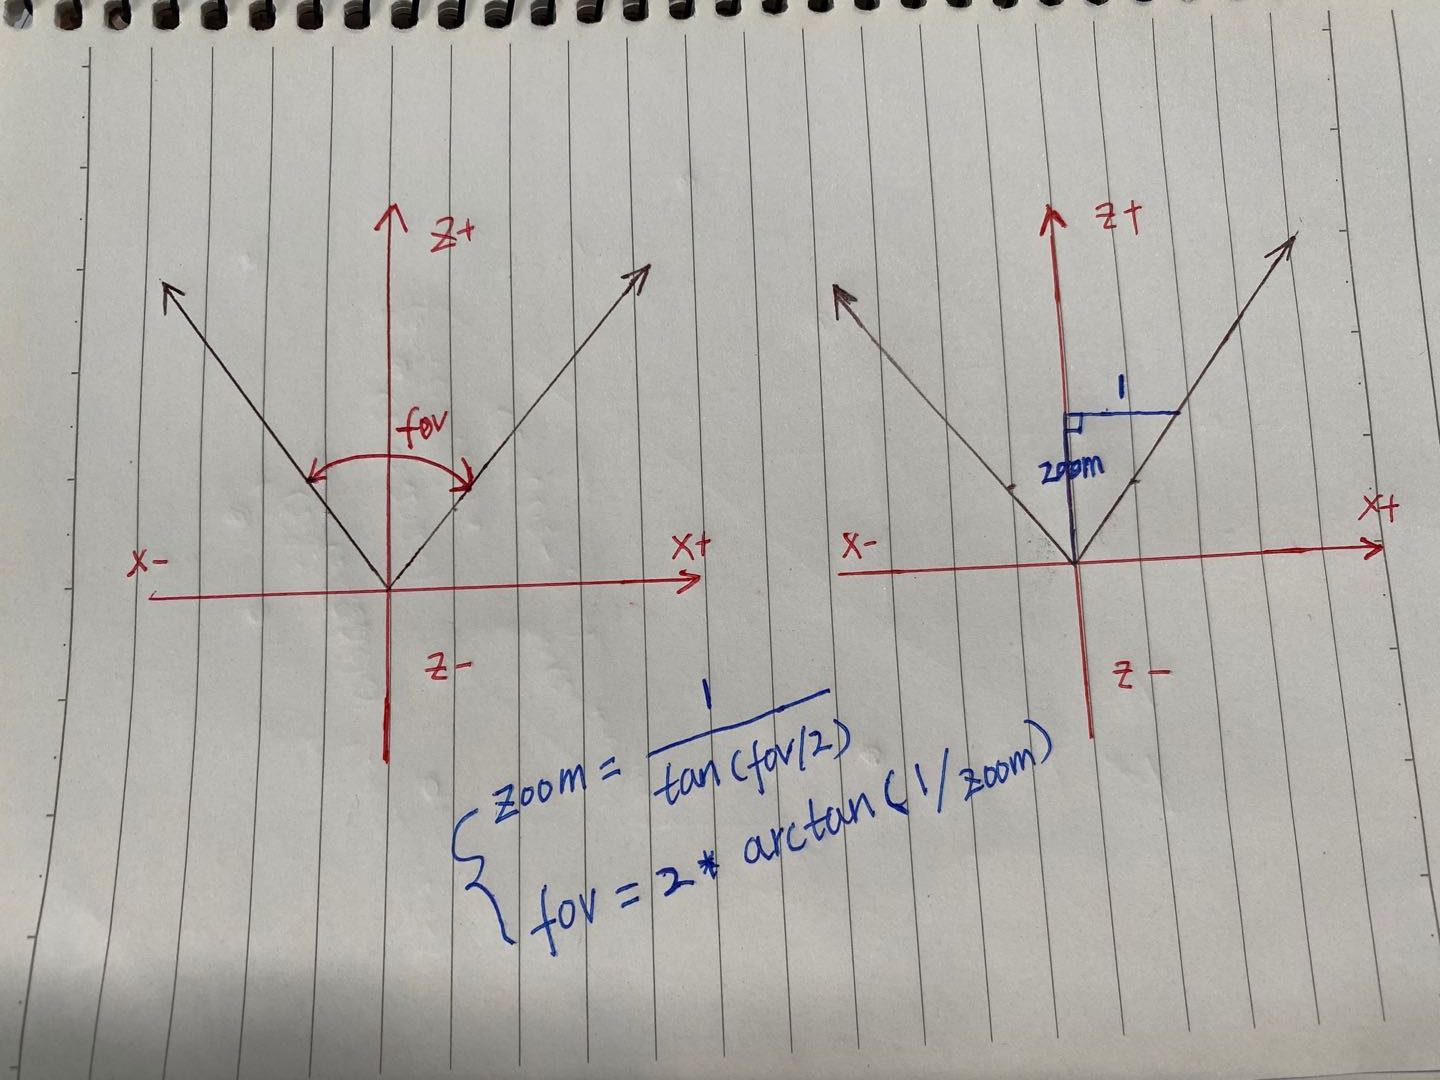 z+
fov
x-
x+
z-
z+
1
zoom
x-
x+
z-
zoom = 1 / tan(fov/2)
fov = 2* arctan(1/zoom)